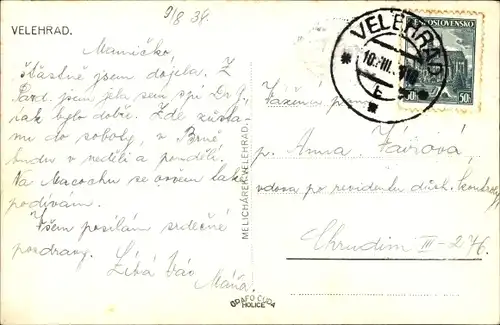 9/8 34.
VELEHRAD.
Mamičko,
šťastně jsem dojela. Z
Pard. jsem jela sem spí Dr. G,
tak bylo dobře. Zde zůsta
mi do soboty, v Brně
budu v neděli a pondělí.
Na Macochu se ovšem také
podívám.
Všem posílám srdečné
pozdravy.
Líbá Vás
Máňa.
MELICHÁREK, VELEHRAD.
GRAFO ČUDA
HOLICE
VELEHRAD
ČESKOSLOVENSKO
50
50h
Vážená paní
p. Anna Vávrová,
vdova po revidentu důch. kontroly
Chrudim III-276.